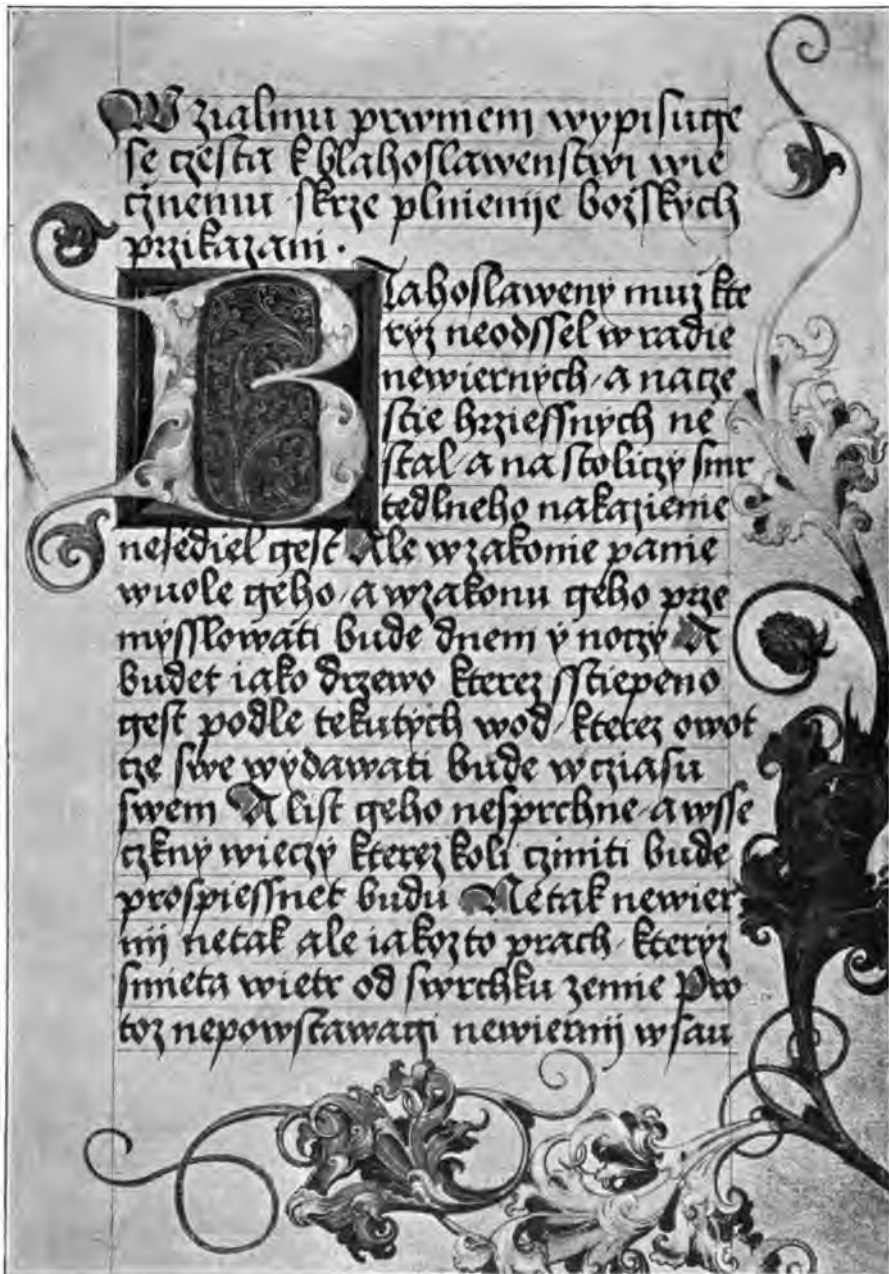 W zialmu prwmem wypisuge
se czesta k blahoslawenstwi wie
cznemu skrze plnienije bozskych
przikazani ·
Blahoslaweny muz kte
ryz neodssel w radie
newiernych / a nacze
stie hrziessnych ne
stal / a na stoliczy smr
tedlneho nakazienie
nesediel gest Ale w zakonie panie
wuole geho / a w zakonu geho prze
mysslowati bude dnem y noczy A
budet iako drzewo kterez sstiepeno
gest podle tekutych wod / kterez owot
cze swe wydawati bude w cziasu
swem A list geho nesprchne / a wsse
czkny wieczy kterez koli cziniti bude
prospiessnet budu Ne tak newier
nij netak ale iakozto prach / kteryz
smieta wietr od swrchku zemie Pro
toz nepowstawagi newiernij w sau